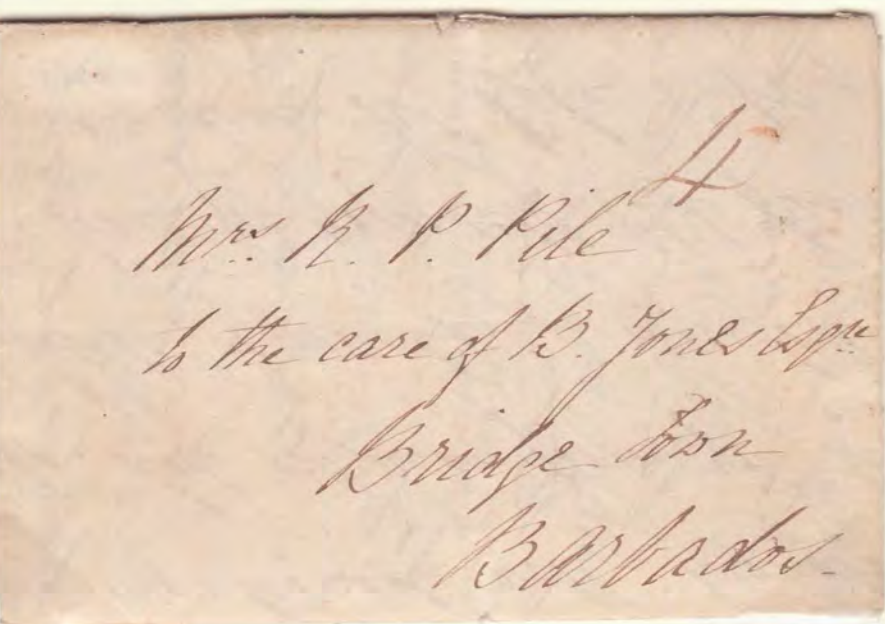 4
Mrs. R. P. Pile
to the care of B. Jones Esqre
Bridge Town
Barbados-